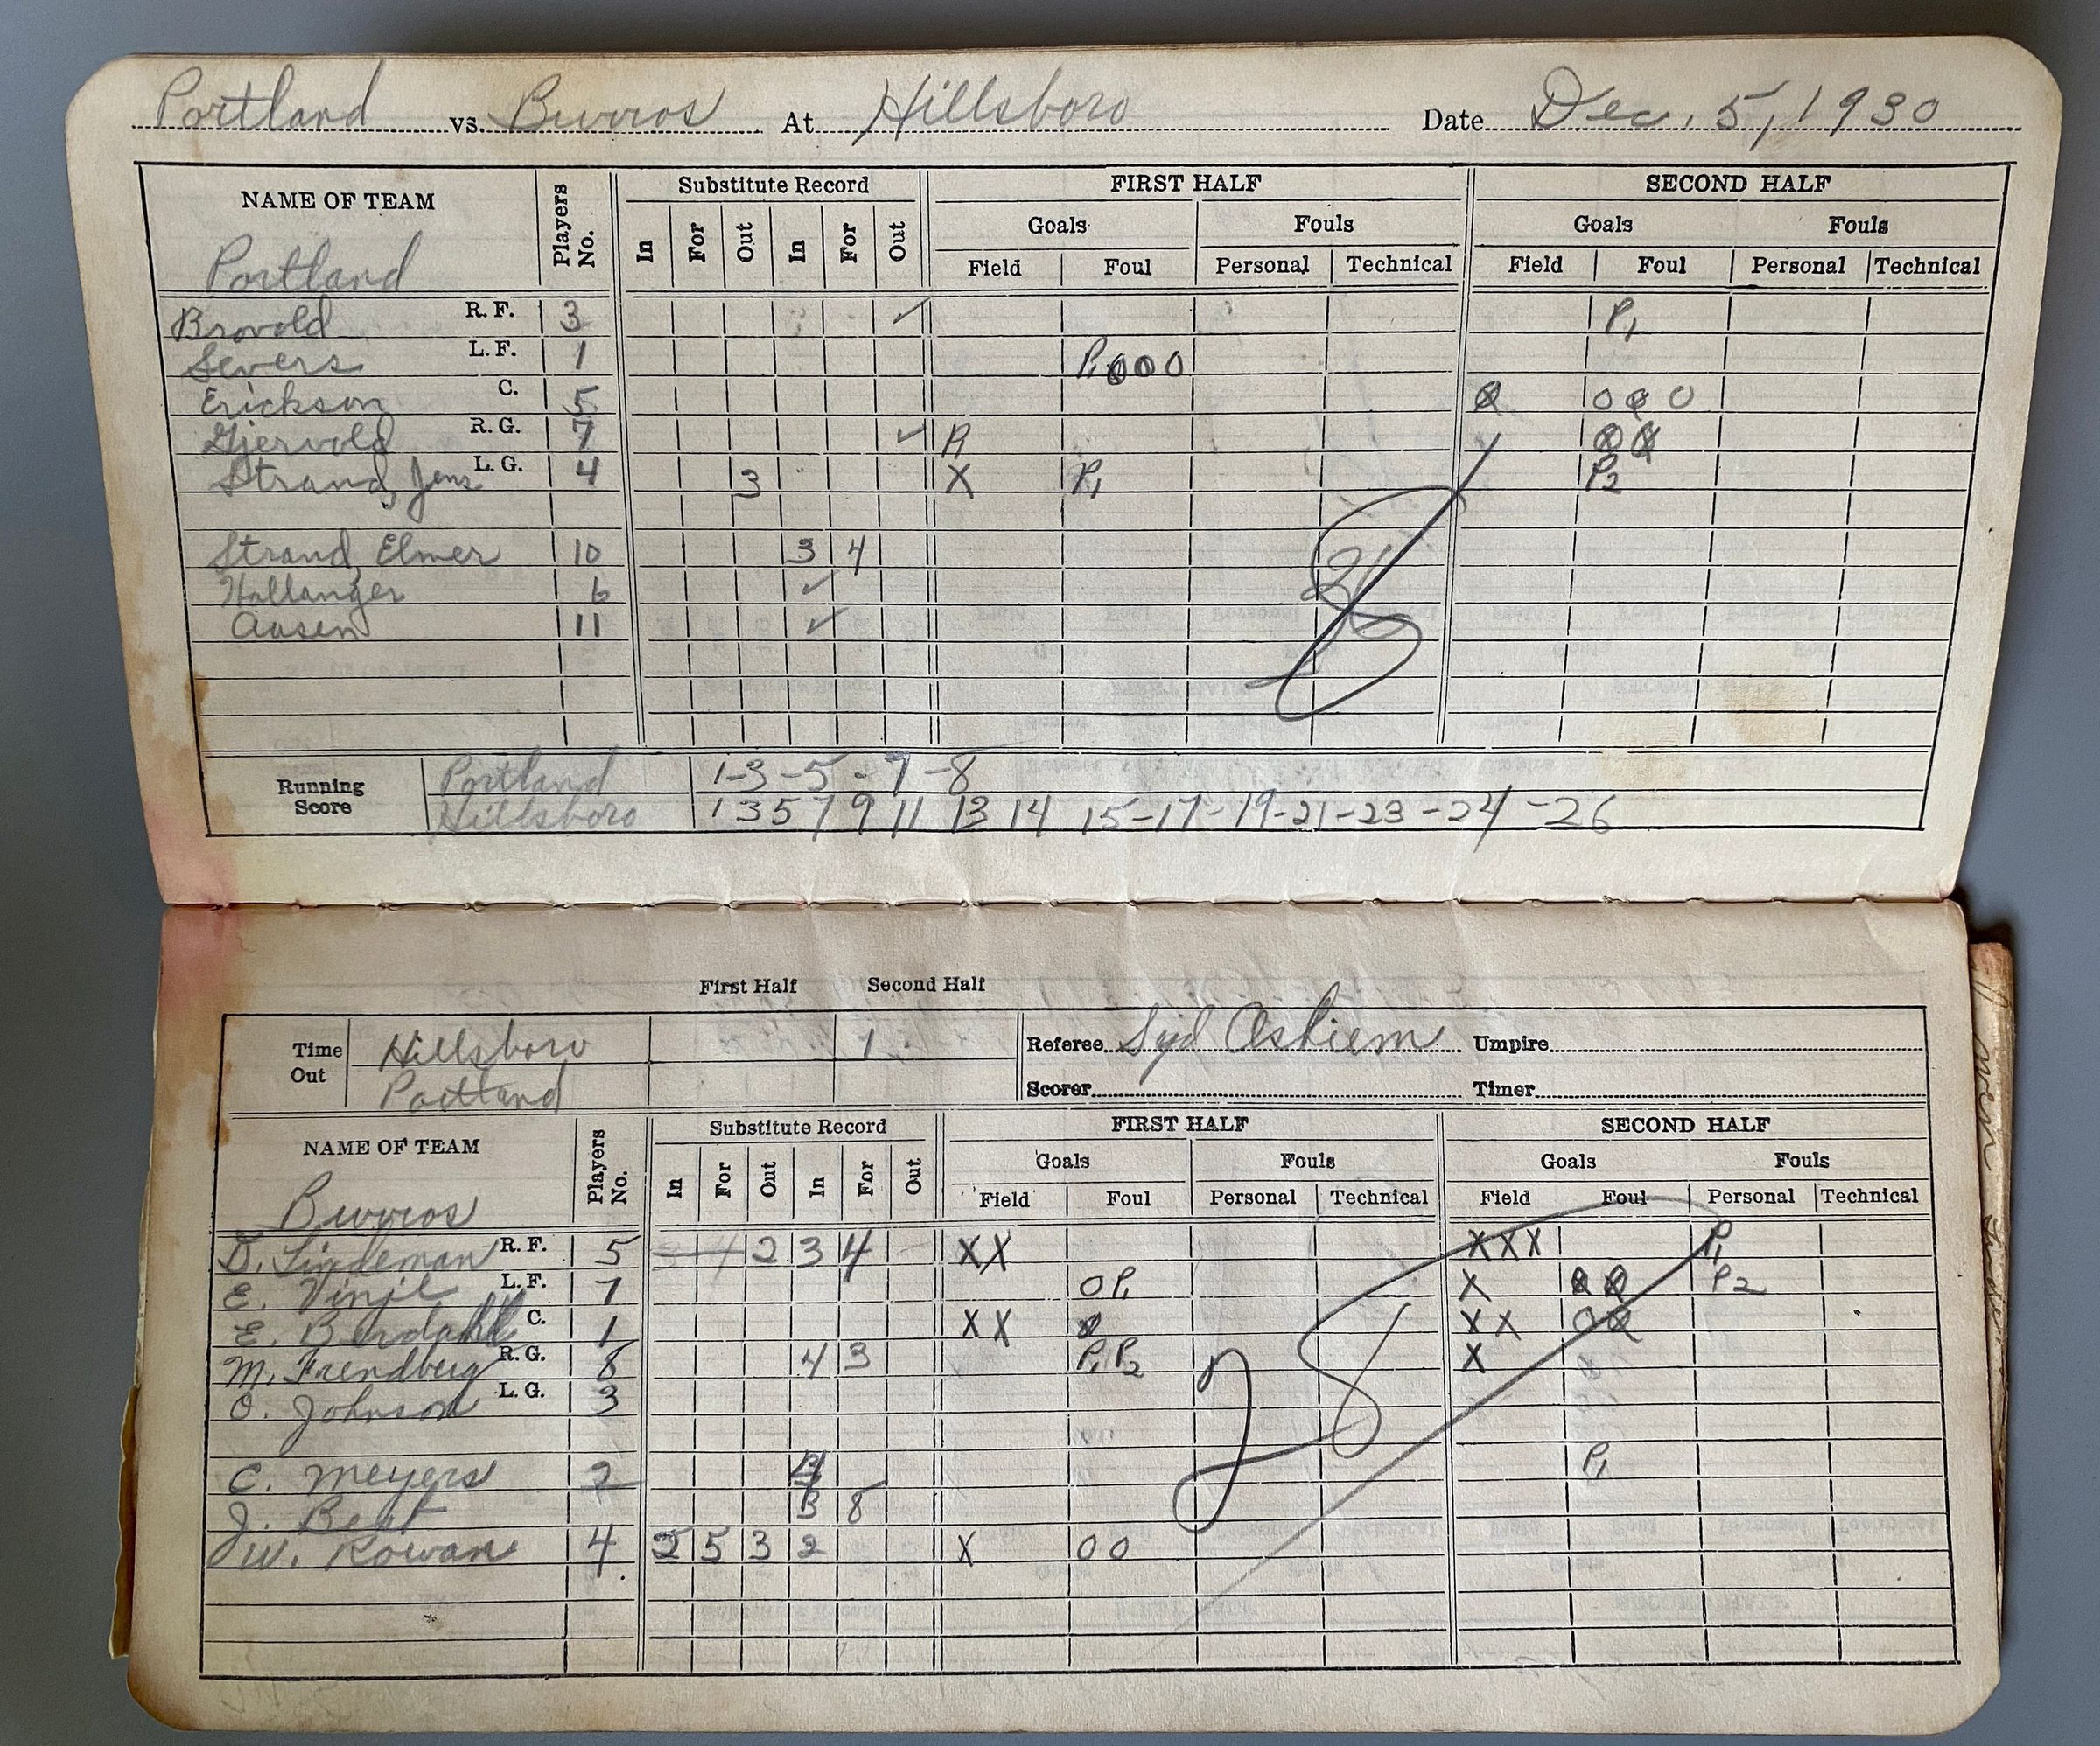 Portland vs. Burros At Hillsboro Date Dec. 5, 1930
NAME OF TEAM Players No. Substitute Record FIRST HALF SECOND HALF
Goals Fouls Goals Fouls
In For Out In For Out Field Foul Personal Technical Field Foul Personal Technical
Portland
Brovold R. F. 3 ✓ P1
Severs L. F. 1 P1 0 0 0
Erickson C. 5 0 0 0
Gjervold R. G. 7 ✓
Strand, Jens L. G. 4 3 X P1 P2
Strand, Elmer 10 3 4
Hallanger 6 ✓
Aasen 11 ✓
8
Running Score Portland 1-3-5-7-8
Hillsboro 1 3 5 7 9 11 13 14 15-17-19-21-23-24-26
First Half Second Half
Time Out Hillsboro 1 Referee Syd Oshiem Umpire
Portland Scorer Timer
NAME OF TEAM Players No. Substitute Record FIRST HALF SECOND HALF
Goals Fouls Goals Fouls
In For Out In For Out Field Foul Personal Technical Field Foul Personal Technical
Burros
D. Lindeman R. F. 5 2 3 4 X X X X X P1
E. Vinje L. F. 7 0 P1 X P2
E. Berdahl C. 1 X X X X
M. Frendberg R. G. 8 4 3 P1 P2 X
O. Johnson L. G. 3
C. Meyers 2 P1
J. Beat 3 8
W. Rowan 4 2 5 3 2 X 0 0
28